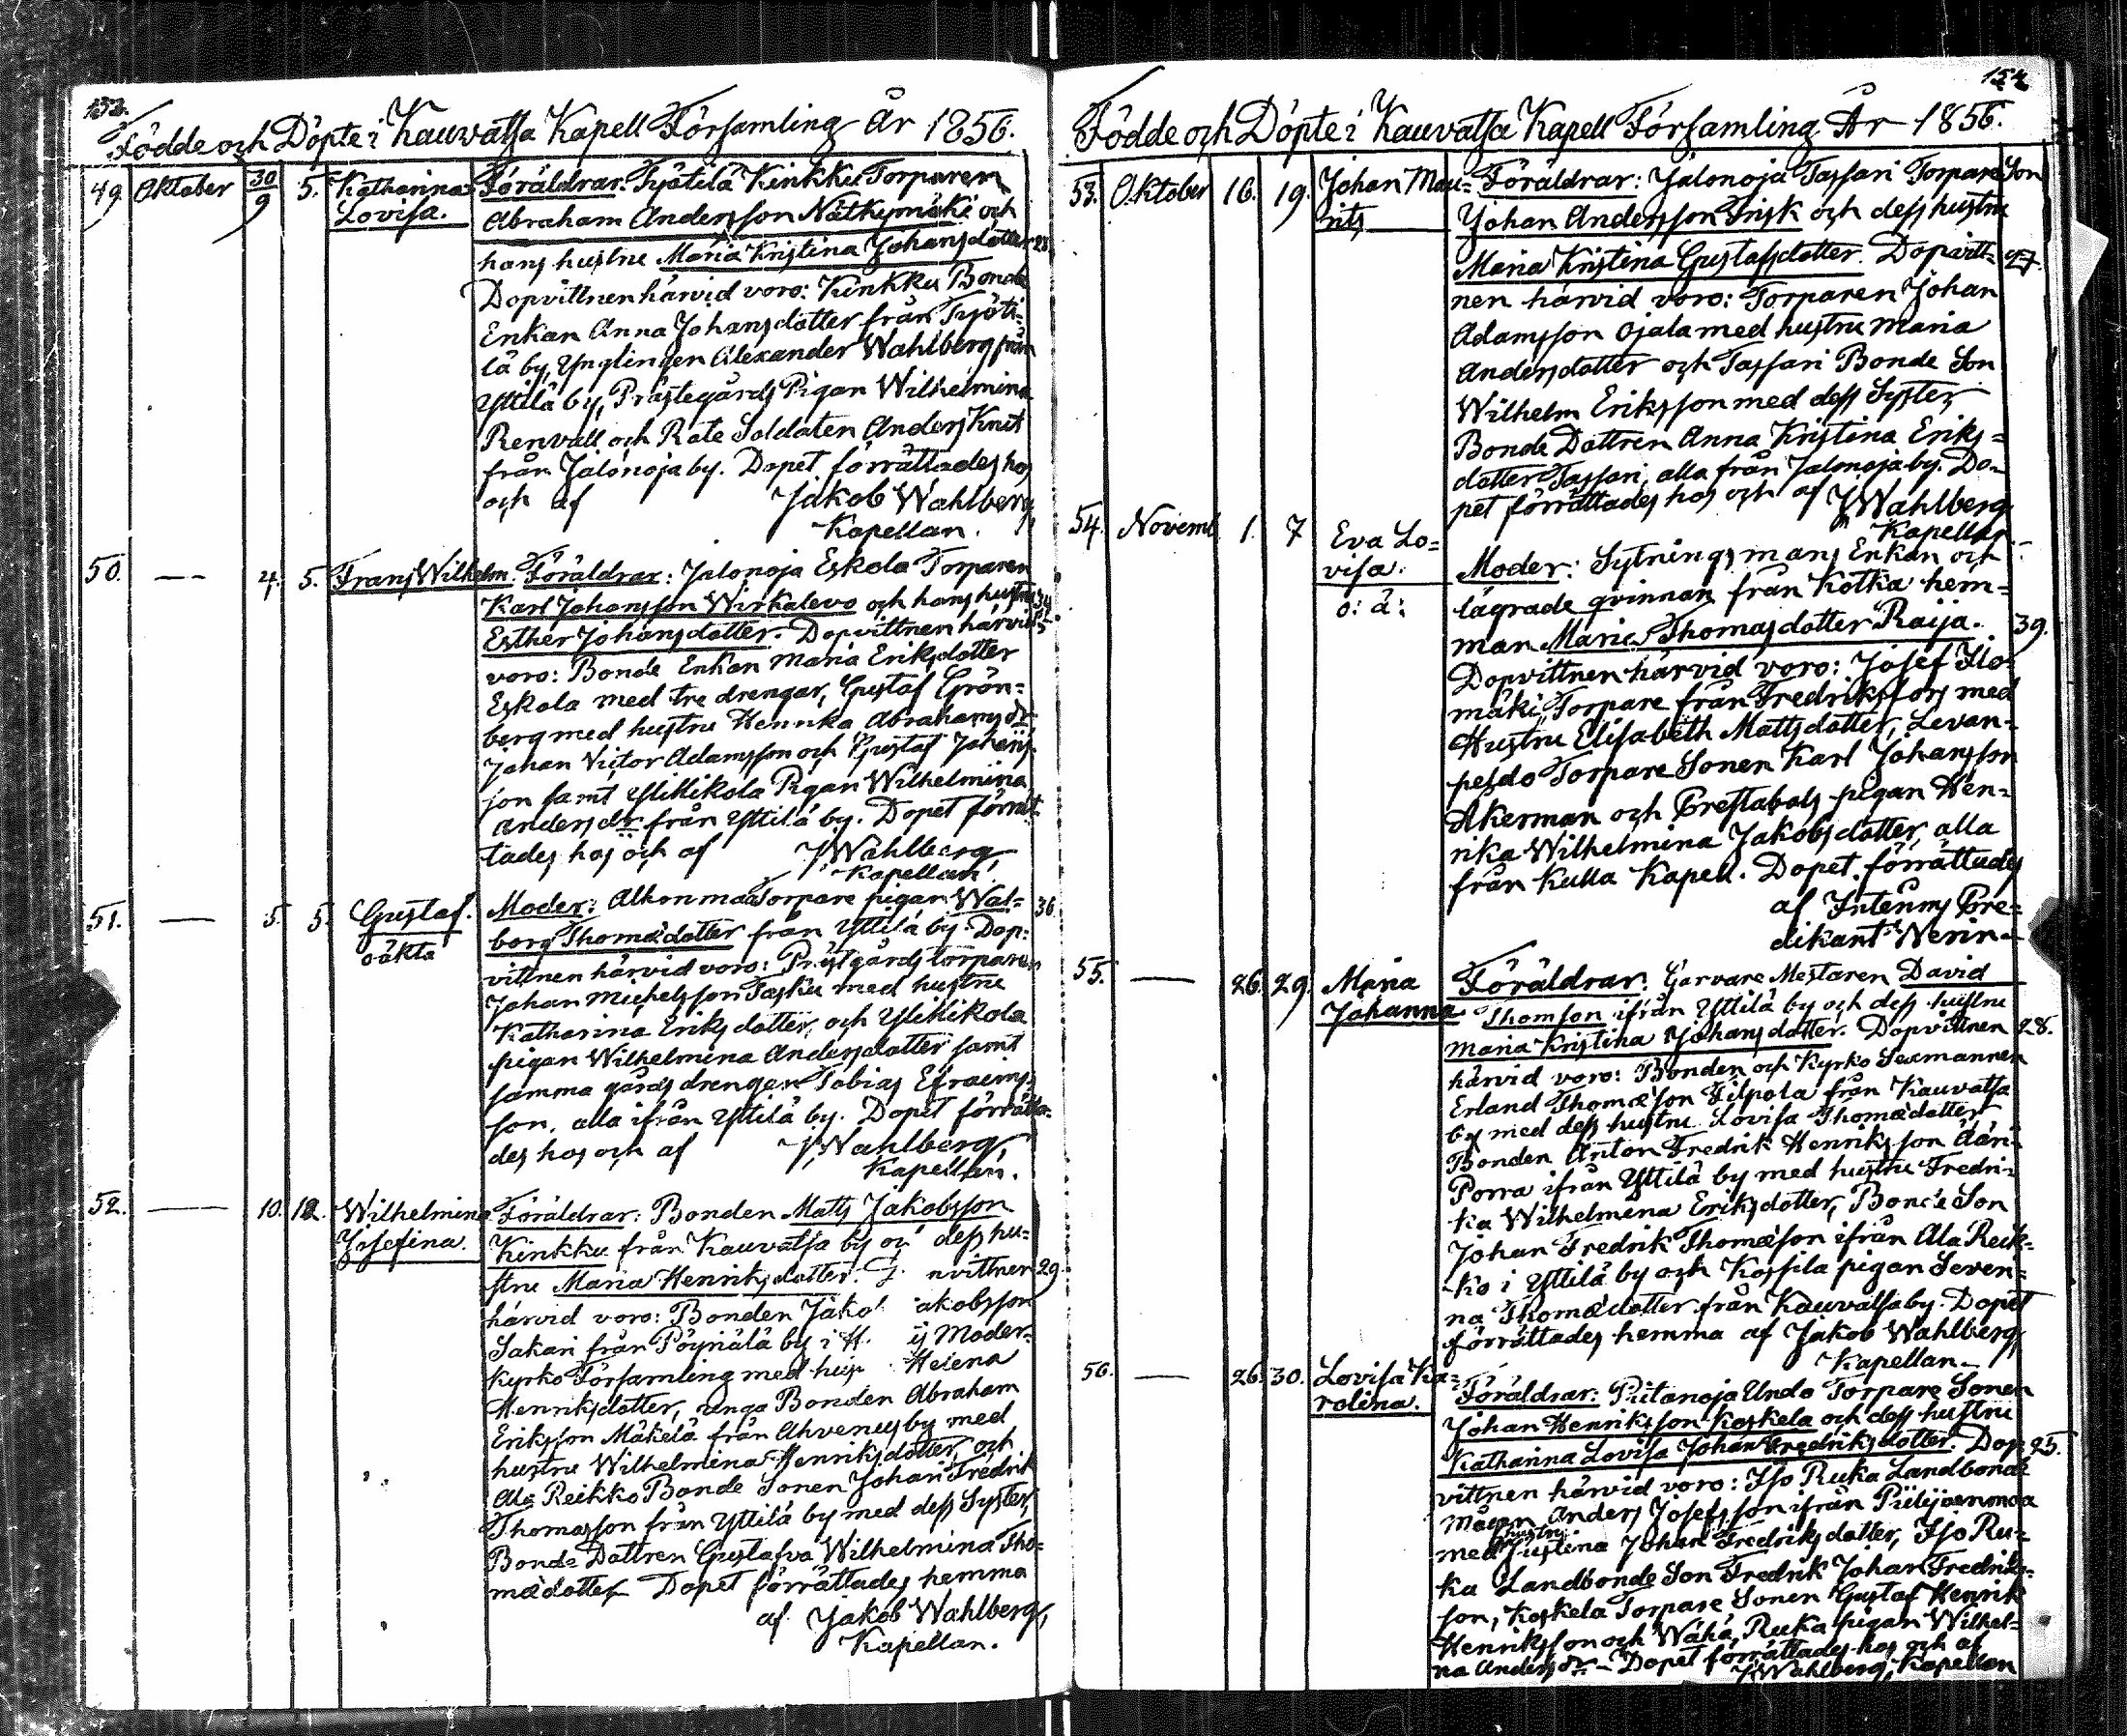 153.
Födde och Döpte i Kauvatsa Kapell Församling år 1856.
49. Oktober 30/9 5. Katharina Lovisa. Föräldrar: Kinkku Torparen
Abraham Andersson Nätkynmäki och
hans hustru Maria Kristina Johansdotter 28
Dopvittnen härvid voro: Kinkku Bonde
Enkan Anna Johansdotter från
lä by, Ynglingen Alexander Wahlberg från
Yttilä by, Prästegårds Pigan Wilhelmina
Renvall och Rote Soldaten Anders Knit
från Jalonoja by. Dopet förrättades hos
och af Jakob Wahlberg,
Kapellan.
50. —— 4. 5. Frans Wilhelm. Föräldrar: Jalonoja Eskola Torparen
Karl Johansson Wirkalevo och hans hustru 34
Esther Johansdotter. Dopvittnen härvid
voro: Bonde Enkan Maria Eriksdotter
Eskola med tre drengar, Gustaf Grön=
berg med hustru Henrika Abrahamsdr
Johan Victor Adamsson och Gustaf Johans
son samt Yli Mikola Pigan Wilhelmina
Andersdr från Yttilä by. Dopet förrät=
tades hos och af J Wahlberg
Kapellan.
51. —— 5. 5. Gustaf. Moder: Alhonmaa Torpare pigan Wal= 36.
oäkta borg Thomædotter från Yttilä by. Dop=
vittnen härvid voro: Prästgårds torparen
Johan Michelsson Tasku med hustru
Katharina Eriksdotter, och Yli Mikola
pigan Wilhelmina Andersdotter samt
samma gårds drengen Tobias Efraims
son, alla ifrån Yttilä by. Dopet förrätta=
des hos och af J Wahlberg,
Kapellan.
52. —— 10. 12. Wilhelmina Föräldrar: Bonden Matts Jakobsson
Josefina. Kinkku från Kauvatsa by och dess hu=
stru Maria Henriksdotter. D nvittnen 29.
härvid voro: Bonden Jako akobsson
Sakari från Pöyriälä by i H. ij Moder=
kyrko Församling med hus Helena
Henriksdotter, unga Bonden Abraham
Eriksson Mäkelä från Ahvenus by med
hustru Wilhelmina Henriksdotter, och
Ala Reikko Bonde Sonen Johan Fredrik
Thomasson från Yttilä by med dess Syster,
Bonde Dottren Gustafva Wilhelmina Tho=
mædotter Dopet förrättades hemma
af Jakob Wahlberg,
Kapellan.
154.
Födde och Döpte i Kauvatsa Kapell Församling År 1856.
53. Oktober 16. 19. Johan Mau= Föräldrar: Jalonoja Tassari Torpare Son
rits Johan Andersson Frisk och dess hustru
Maria Kristina Gustafsdotter. Dopvitt= 27.
nen härvid voro: Torparen Johan
Adamsson Ojala med hustru Maria
Andersdotter och Tassari Bonde Son
Wilhelm Eriksson med dess Syster,
Bonde Dottren Anna Kristina Eriks=
dotter Tassari, alla från Jalonoja by. Do=
pet förrättades hos och af J Wahlberg
Kapellan.
54. Novemb 1. 7 Eva Lo=
visa. Moder: Sytningsmans Enkan och
o: ä: lägrade qvinnan från Kotka hem=
man Maria Thomasdotter Raija. 39.
Dopvittnen härvid voro: Josef Ilo=
mäki Torpare från Fredriksfors med
Hustru Elisabeth Mattsdotter, Levan=
peldo Torpare Sonen Karl Johansson
Åkerman och Prestabols pigan Hen=
rika Wilhelmina Jakobsdotter, alla
från Kulla Kapell. Dopet förrättades
af Interims Pre=
dikant Wenn
55. —— 26. 29. Maria Föräldrar. Garvare Mestaren David
Johanna Thomson ifrån Yttilä by och dess hustru
Maria Kristina Johansdotter. Dopvittnen 28.
härvid voro: Bonden och Kyrko Sexmannen
Erland Thomæson Filpola från Kauvatsa
by med dess hustru Lovisa Thomædotter
Bonden Anton Fredrik Henriksson Ääri=
Porra ifrån Yttilä by med hustru Fredri=
ka Wilhelmina Eriksdotter, Bonde Son
Johan Fredrik Thomæson ifrån Ala Reik=
ko i Yttilä by och Kossila pigan Severi=
na Thomædotter från Kauvatsa by. Dopet
förrättades hemma af Jakob Wahlberg,
Kapellan.
56. —— 26. 30. Lovisa Ka= Föräldrar: Piitanoja Undo Torpare Sonen
rolina. Johan Henriksson Koskela och dess hustru
Katharina Lovisa Johan Fredriksdotter. Dop= 25.
vittnen härvid voro: Iso Ruka Landbonde
Mågen Anders Josefsson ifrån
med hustru Justina Johan Fredriksdotter, Iso Ru=
ka Landbonde Son Fredrik Johan Fredriks=
son, Koskela Torpare Sonen Gustaf Henrik
Henriksson och Wähä Ruka pigan Wilhel=
na Andersdr. Dopet förrättades hos och af
J Wahlberg, Kapellan